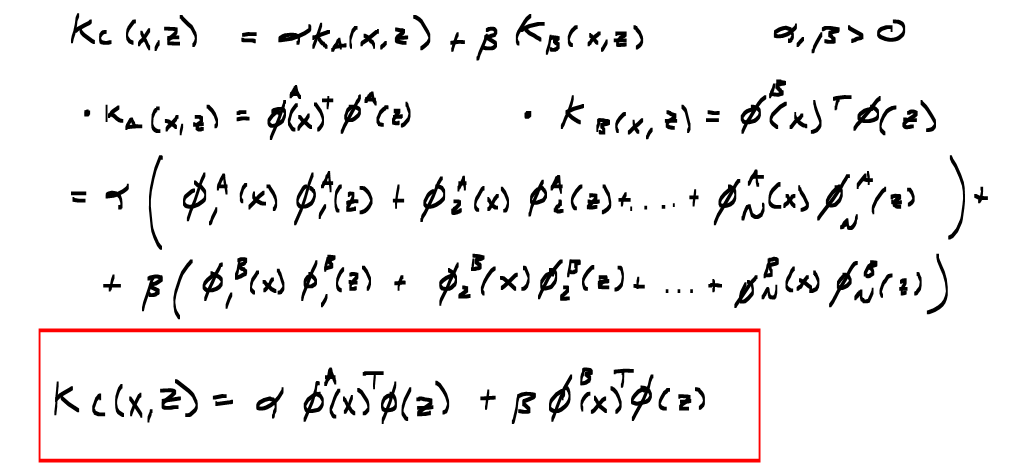 K_C(x,z) = αK_A(x,z) + β K_B(x,z) α, β > 0
· K_A(x,z) = ϕ^A(x)^T ϕ^A(z) · K_B(x,z) = ϕ^B(x)^T ϕ(z)
= α ( ϕ_1^A(x) ϕ_1^A(z) + ϕ_2^A(x) ϕ_2^A(z) + .... + ϕ_N^A(x) ϕ_N^A(z) ) +
+ β ( ϕ_1^B(x) ϕ_1^B(z) + ϕ_2^B(x) ϕ_2^B(z) + ... + ϕ_N^B(x) ϕ_N^B(z) )
K_C(x,z) = α ϕ^A(x)^T ϕ(z) + β ϕ^B(x)^T ϕ(z)